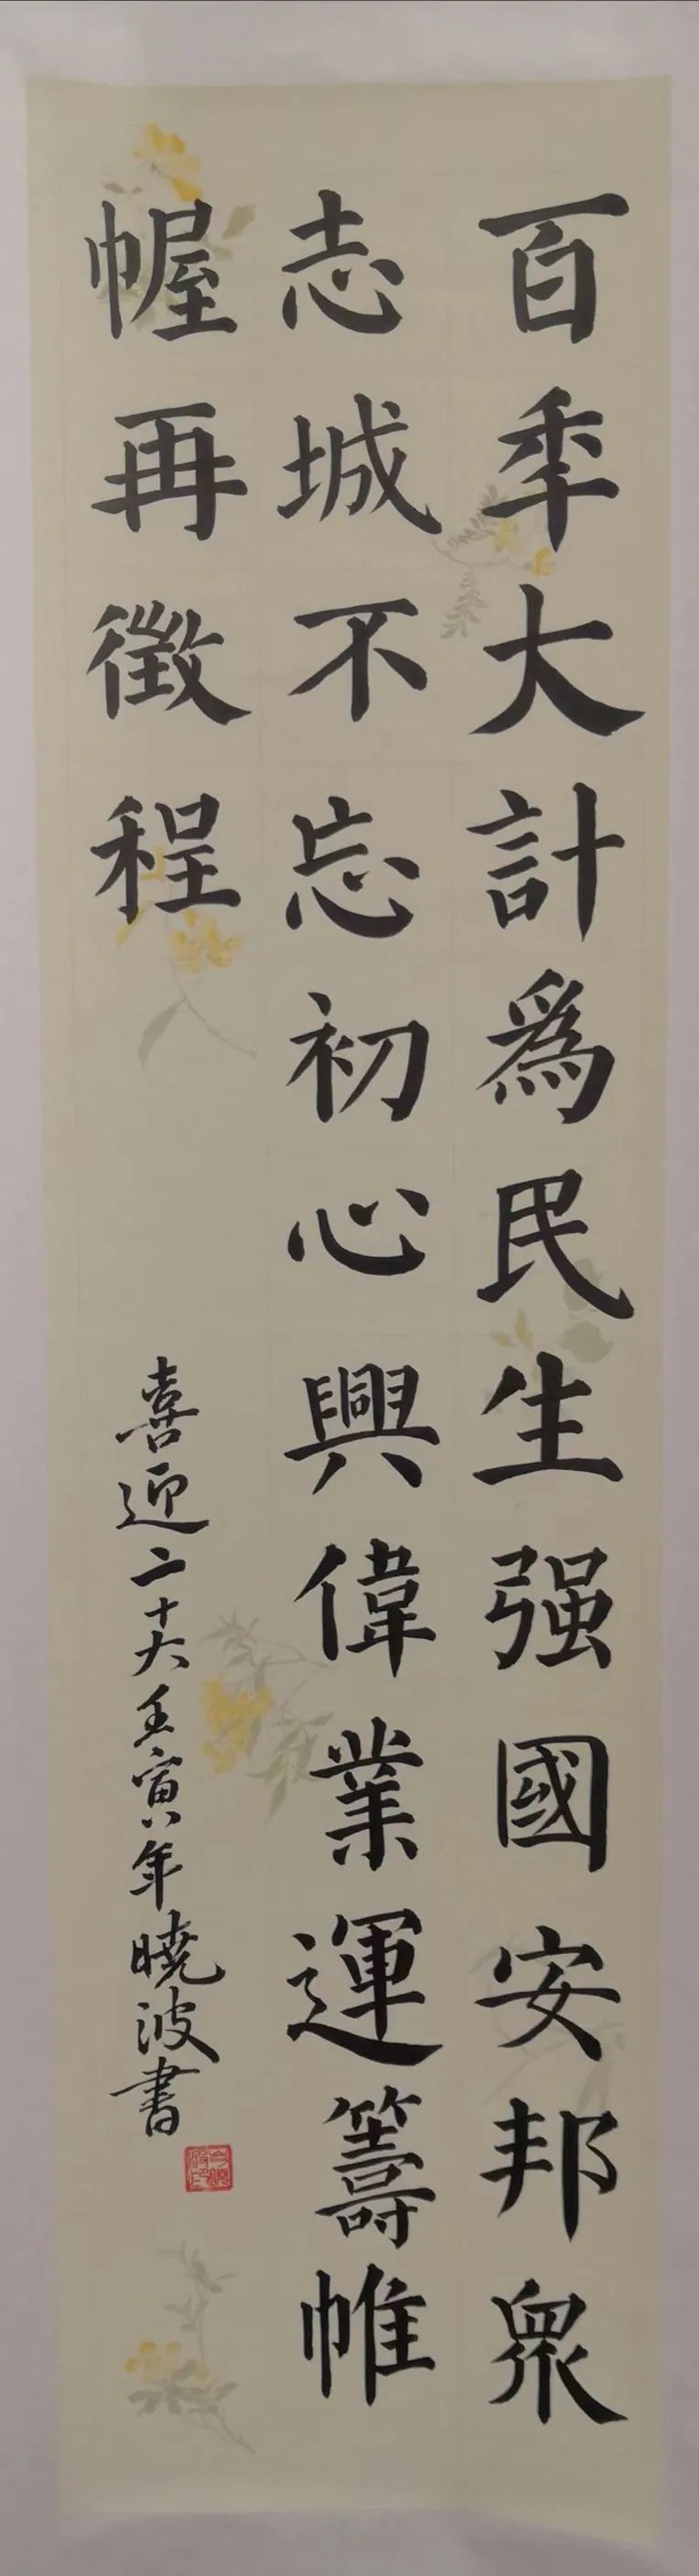 百年大計爲民生强國安邦衆
志城不忘初心興偉業運籌帷
幄再徵程
喜迎二十大壬寅年曉波書